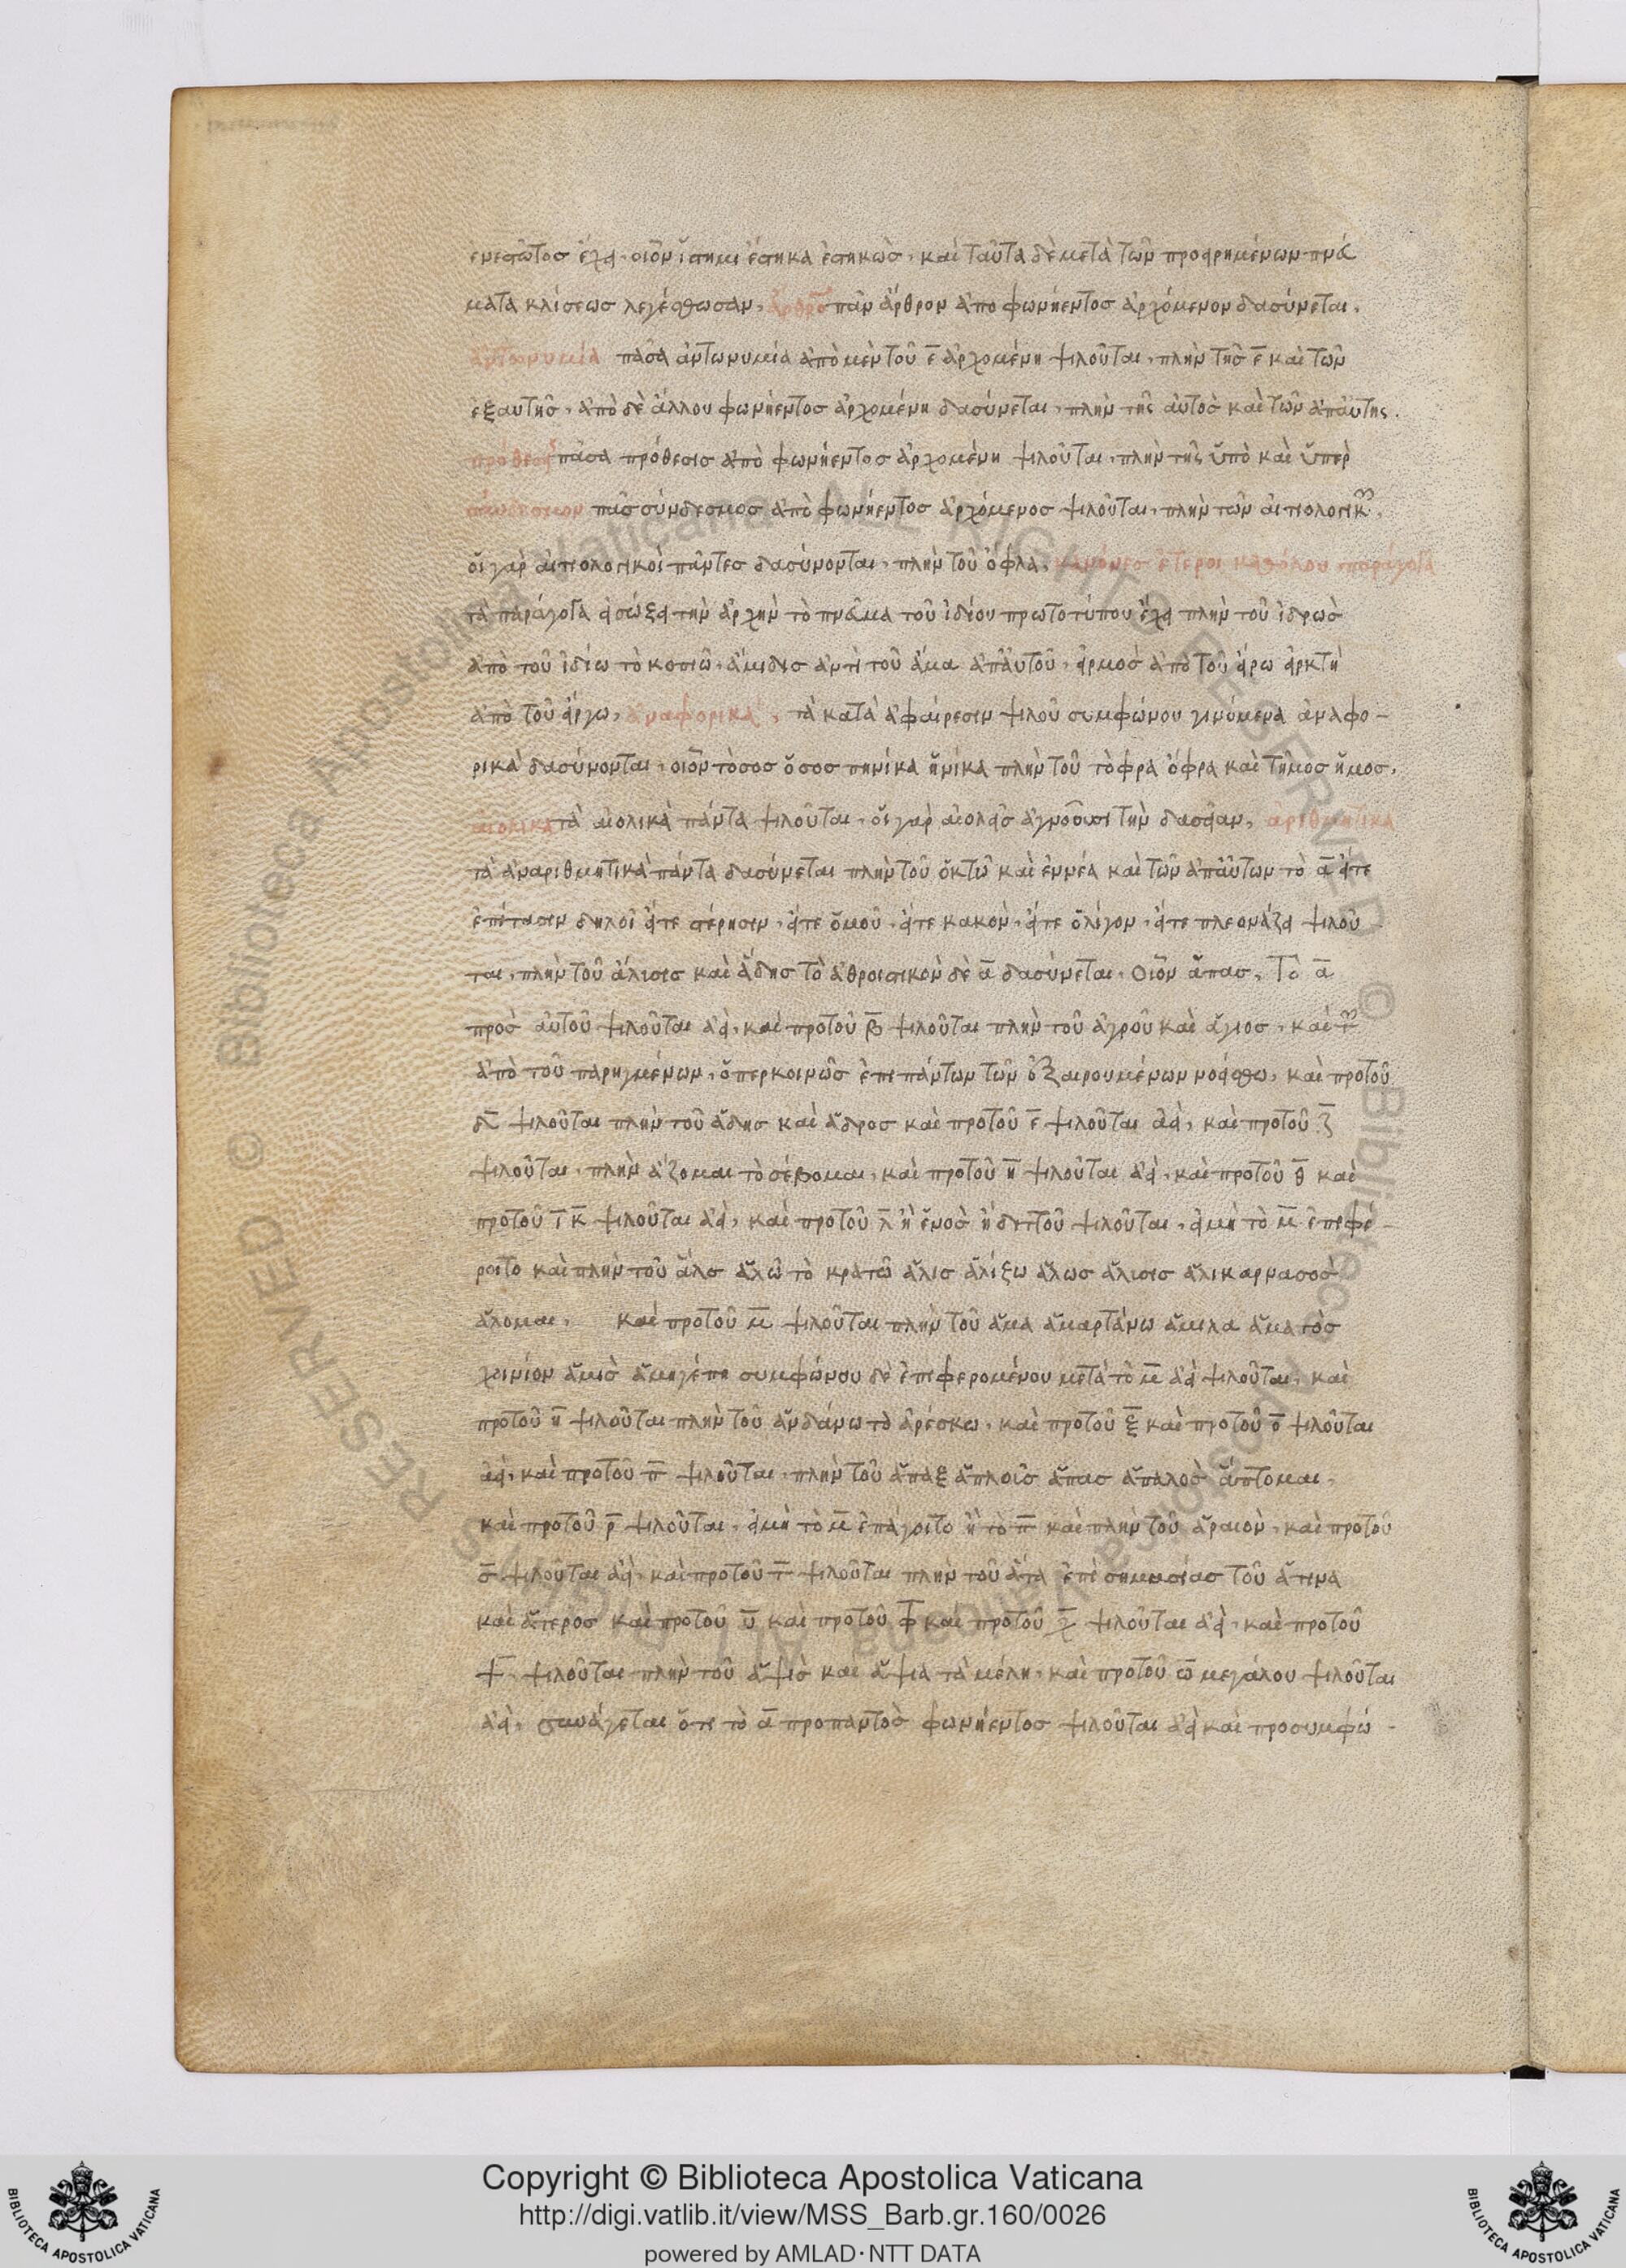 ενεστῶτος ἔχει. οἷον ἵστημι ἕστηκα ἑστηκώς. καὶ ταῦτα δὲ μετὰ τῶν προειρημένων πνευ
ματα κλίσεως λεγέσθωσαν. ἄρθρον πᾶν ἄρθρον ἀπο φωνήεντος ἀρχόμενον δασύνεται.
ἀντωνυμία πᾶσα ἀντωνυμία ἀπὸ μὲν τοῦ ε̅ ἀρχομένη ψιλοῦται. πλὴν τῆς ε̅ καὶ τῶν
ἐξαυτῆς. ἀπὸ δὲ ἄλλου φωνήεντος ἀρχομένη δασύνεται. πλὴν τῆς αὐτὸς καὶ τῶν ἀπαύτης.
πρόθεσις πᾶσα πρόθεσις ἀπὸ φωνήεντος ἀρχομένη ψιλοῦται. πλὴν τῆς ὑπὸ καὶ ὑπὲρ
σύνδεσμον πᾶς σύνδεσμος ἀπὸ φωνήεντος ἀρχόμενος ψιλοῦται. πλὴν τῶν αἰτιολογικῶν.
οἱ γὰρ αἰτιολογικοὶ πάντες δασύνονται. πλὴν τοῦ ὄφλα. κανόνες ἕτεροι καθόλου παράγωγα
τὰ παράγωγα εἰσώξει τὴν ἀρχὴν τὸ πνεῦμα τοῦ ἰδίου πρωτοτύπου ἔχει πλὴν τοῦ ἱδρὼς
ἀπὸ τοῦ ἰδίω τὸ κοπιῶ. ἄμιδις ἀντὶ τοῦ ἅμα ἀπαυτοῦ. εἱρμὸς ἀπὸ τοῦ εἴρω εἱρκτὴ
ἀπὸ τοῦ εἴργω. ἀναφορικά. τὰ κατὰ ἀφαίρεσιν ψιλοῦ συμφώνου γινόμενα ἀναφο-
ρικὰ δασύνονται. οἷον τόσος ὅσος πηνίκα ἡνίκα πλὴν τοῦ τόφρα ὄφρα καὶ τῆμος ἦμος.
αἰολικὰ τὰ αἰολικὰ πάντα ψιλοῦται. οἱ γὰρ αἰολεῖς ἀγνοοῦσι τὴν δασεῖαν. ἀριθμητικὰ
τὰ ἀναριθμητικὰ πάντα δασύνεται πλὴν τοῦ ὀκτὼ καὶ ἐννέα καὶ τῶν ἀπαύτων τὸ α̅ εἴτε
ἐπίτασιν δηλοῖ εἴτε στέρησιν. εἴτε ὁμοῦ. εἴτε κακόν. εἴτε ὀλίγον. εἴτε πλεονάζει ψιλοῦ
ται. πλὴν τοῦ ἅλισις καὶ ἅδης τὸ ἀθροιστικὸν δὲ α̅ δασύνεται. οἷον ἅπας. Τὸ α̅
πρὸς αὐτοῦ ψιλοῦται ἀεί. καὶ προτοῦ β̅ ψιλοῦται πλὴν τοῦ ἁγροῦ καὶ ἅγιος. καὶ τῶν
ἀπὸ τοῦ παρηγμένων. ὅπερ κοινῶς ἐπι πάντων τῶν ἐξαιρουμένων νοείσθω. καὶ προτοῦ
δ̅ ψιλοῦται πλὴν τοῦ ἅδης καὶ ἅδρος καὶ προτοῦ ε̅ ψιλοῦται ἀεί. καὶ προτοῦ ζ̅
ψιλοῦται. πλὴν ἅζομαι τὸ σέβομαι. καὶ προτοῦ η̅ ψιλοῦται ἀεί. καὶ προτοῦ θ̅ καὶ
προτοῦ ι̅ κ̅ ψιλοῦται ἀεί. καὶ προτοῦ λ̅ ἢ ἑνὸς ἢ δυτοῦ ψιλοῦται. εἰμὴ τὸ μ̅ ἐπιφέ-
ροιτο καὶ πλὴν τοῦ ἅλς ἁλῶ τὸ κρατῶ ἅλις ἁλίξω ἅλως ἅλισις ἁλικαρνασὸς
ἅλομαι. καὶ προτοῦ μ̅ ψιλοῦται πλὴν τοῦ ἅμα ἁμαρτάνω ἅμιλα ἅμα τὸς
χοινίον ἁμὶς ἁμηγέπη συμφώνου δὲ ἐπιφερομένου μετὰ τὸ μ̅ ἀεὶ ψιλοῦται. καὶ
προτοῦ ν̅ ψιλοῦται πλὴν τοῦ ἁνδάνω τὸ ἀρέσκω. καὶ προτοῦ ξ̅ καὶ προτοῦ ο̅ ψιλοῦται
ἀεί. καὶ προτοῦ π̅ ψιλοῦται. πλὴν τοῦ ἅπαξ ἁπλοῖς ἅπας ἁπαλὸς ἅπτομαι.
καὶ προτοῦ ρ̅ ψιλοῦται. εἰμὴ τὸ μ̅ ἐπάγοιτο ἢ τὸ π̅ καὶ πλὴν τοῦ ἁραιόν. καὶ προτοῦ
σ̅ ψιλοῦται ἀεί. καὶ προτοῦ τ̅ ψιλοῦται πλὴν τοῦ ἅτα ἐπὶ σημασίας τοῦ ἅτινα
καὶ ἅτερος καὶ προτοῦ υ̅ καὶ προτοῦ φ̅ καὶ προτοῦ χ̅ ψιλοῦται ἀεί. καὶ προτοῦ
ψ̅. ψιλοῦται πλὴν τοῦ ἁψὶς καὶ ἅψια τὰ μέλη. καὶ προτοῦ ω̅ μεγάλου ψιλοῦται
ἀεί. συνάγεται ὅτι τὸ α̅ προπαντὸς φωνήεντος ψιλοῦται ἀεὶ καὶ προσυμφώ-
Copyright © Biblioteca Apostolica Vaticana
http://digi.vatlib.it/view/MSS_Barb.gr.160/0026
powered by AMLAD·NTT DATA